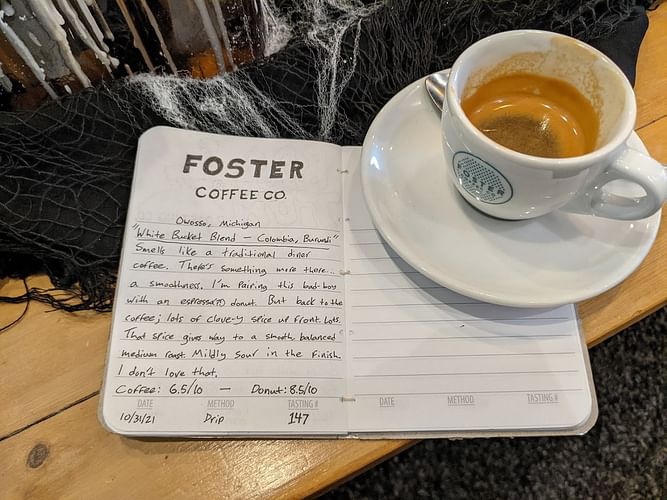 FOSTER
COFFEE CO.
Owosso, Michigan
"White Bucket Blend – Colombia, Burundi"
Smells like a traditional diner
coffee. There's something more there...
a smoothness. I'm pairing this bad-boy
with an espresso donut. But back to the
coffee; lots of clove-y spice up front. Lots.
That spice gives way to a smooth, balanced
medium roast. Mildly sour in the finish.
I don't love that.
Coffee: 6.5/10 – Donut: 8.5/10
DATE METHOD TASTING #
10/31/21 Drip 147
DATE METHOD TASTING #
FOSTER